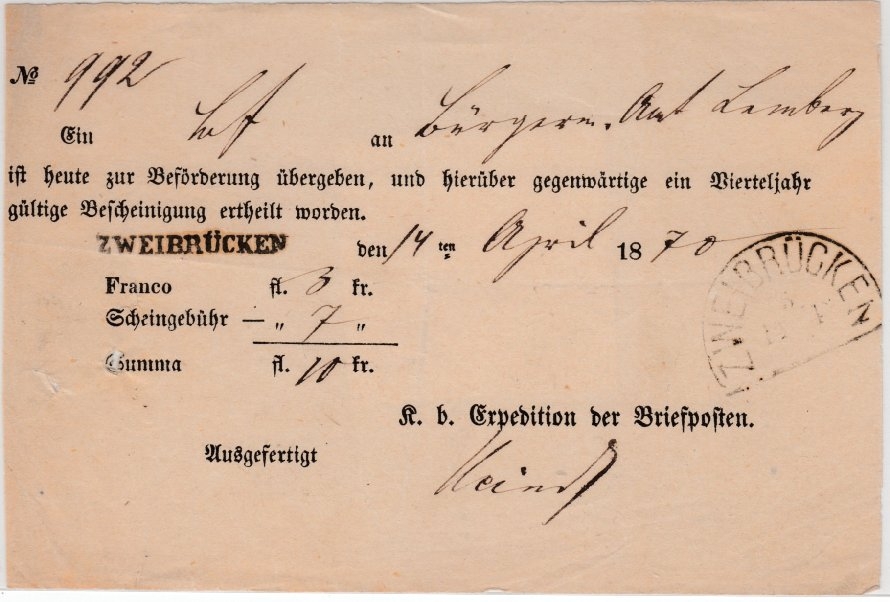 № 992
Ein Bf an Bürgerm. Amt Lemberg
ist heute zur Beförderung übergeben, und hierüber gegenwärtige ein Vierteljahr
gültige Bescheinigung ertheilt worden.
ZWEIBRÜCKEN den 14ten April 1870
Franco fl. 3 kr.
Scheingebühr — „ 7 „
Summa fl. 10 kr.
ZWEIBRÜCKEN
K. b. Expedition der Briefposten.
Ausgefertigt